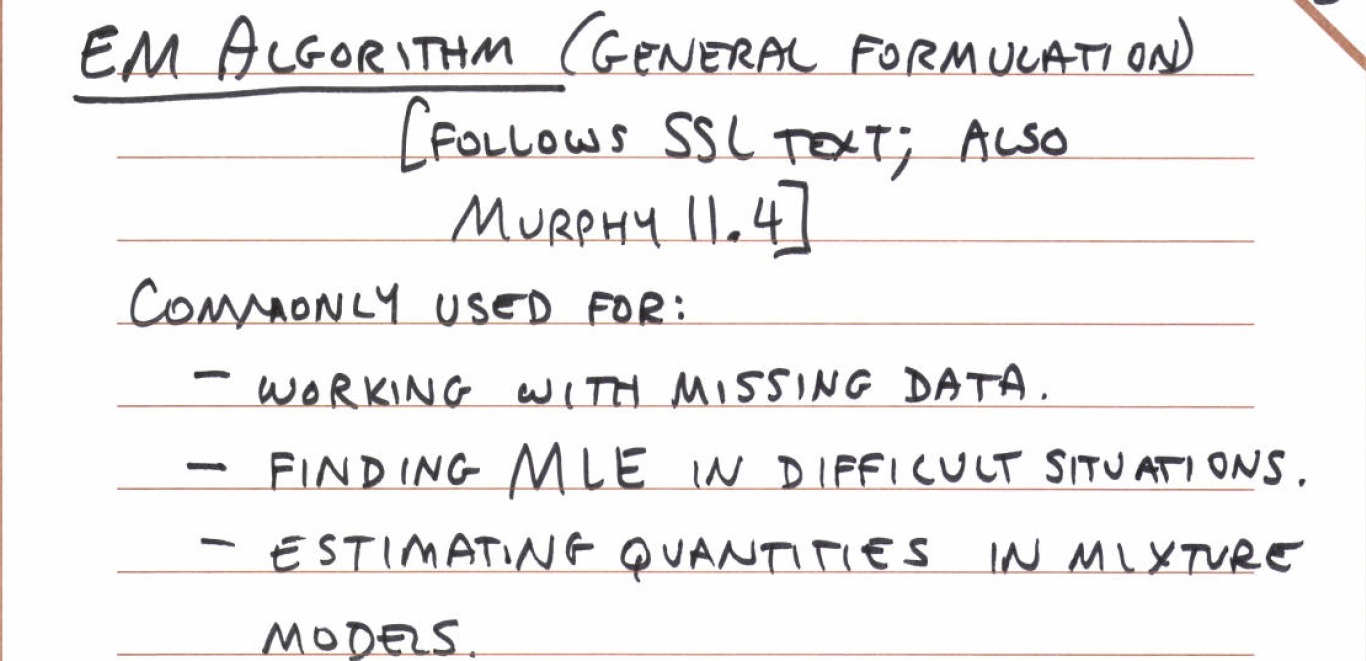 EM ALGORITHM (GENERAL FORMULATION)
[FOLLOWS SSL TEXT; ALSO
MURPHY 11.4]
COMMONLY USED FOR:
- WORKING WITH MISSING DATA.
- FINDING MLE IN DIFFICULT SITUATIONS.
- ESTIMATING QUANTITIES IN MIXTURE
MODELS.